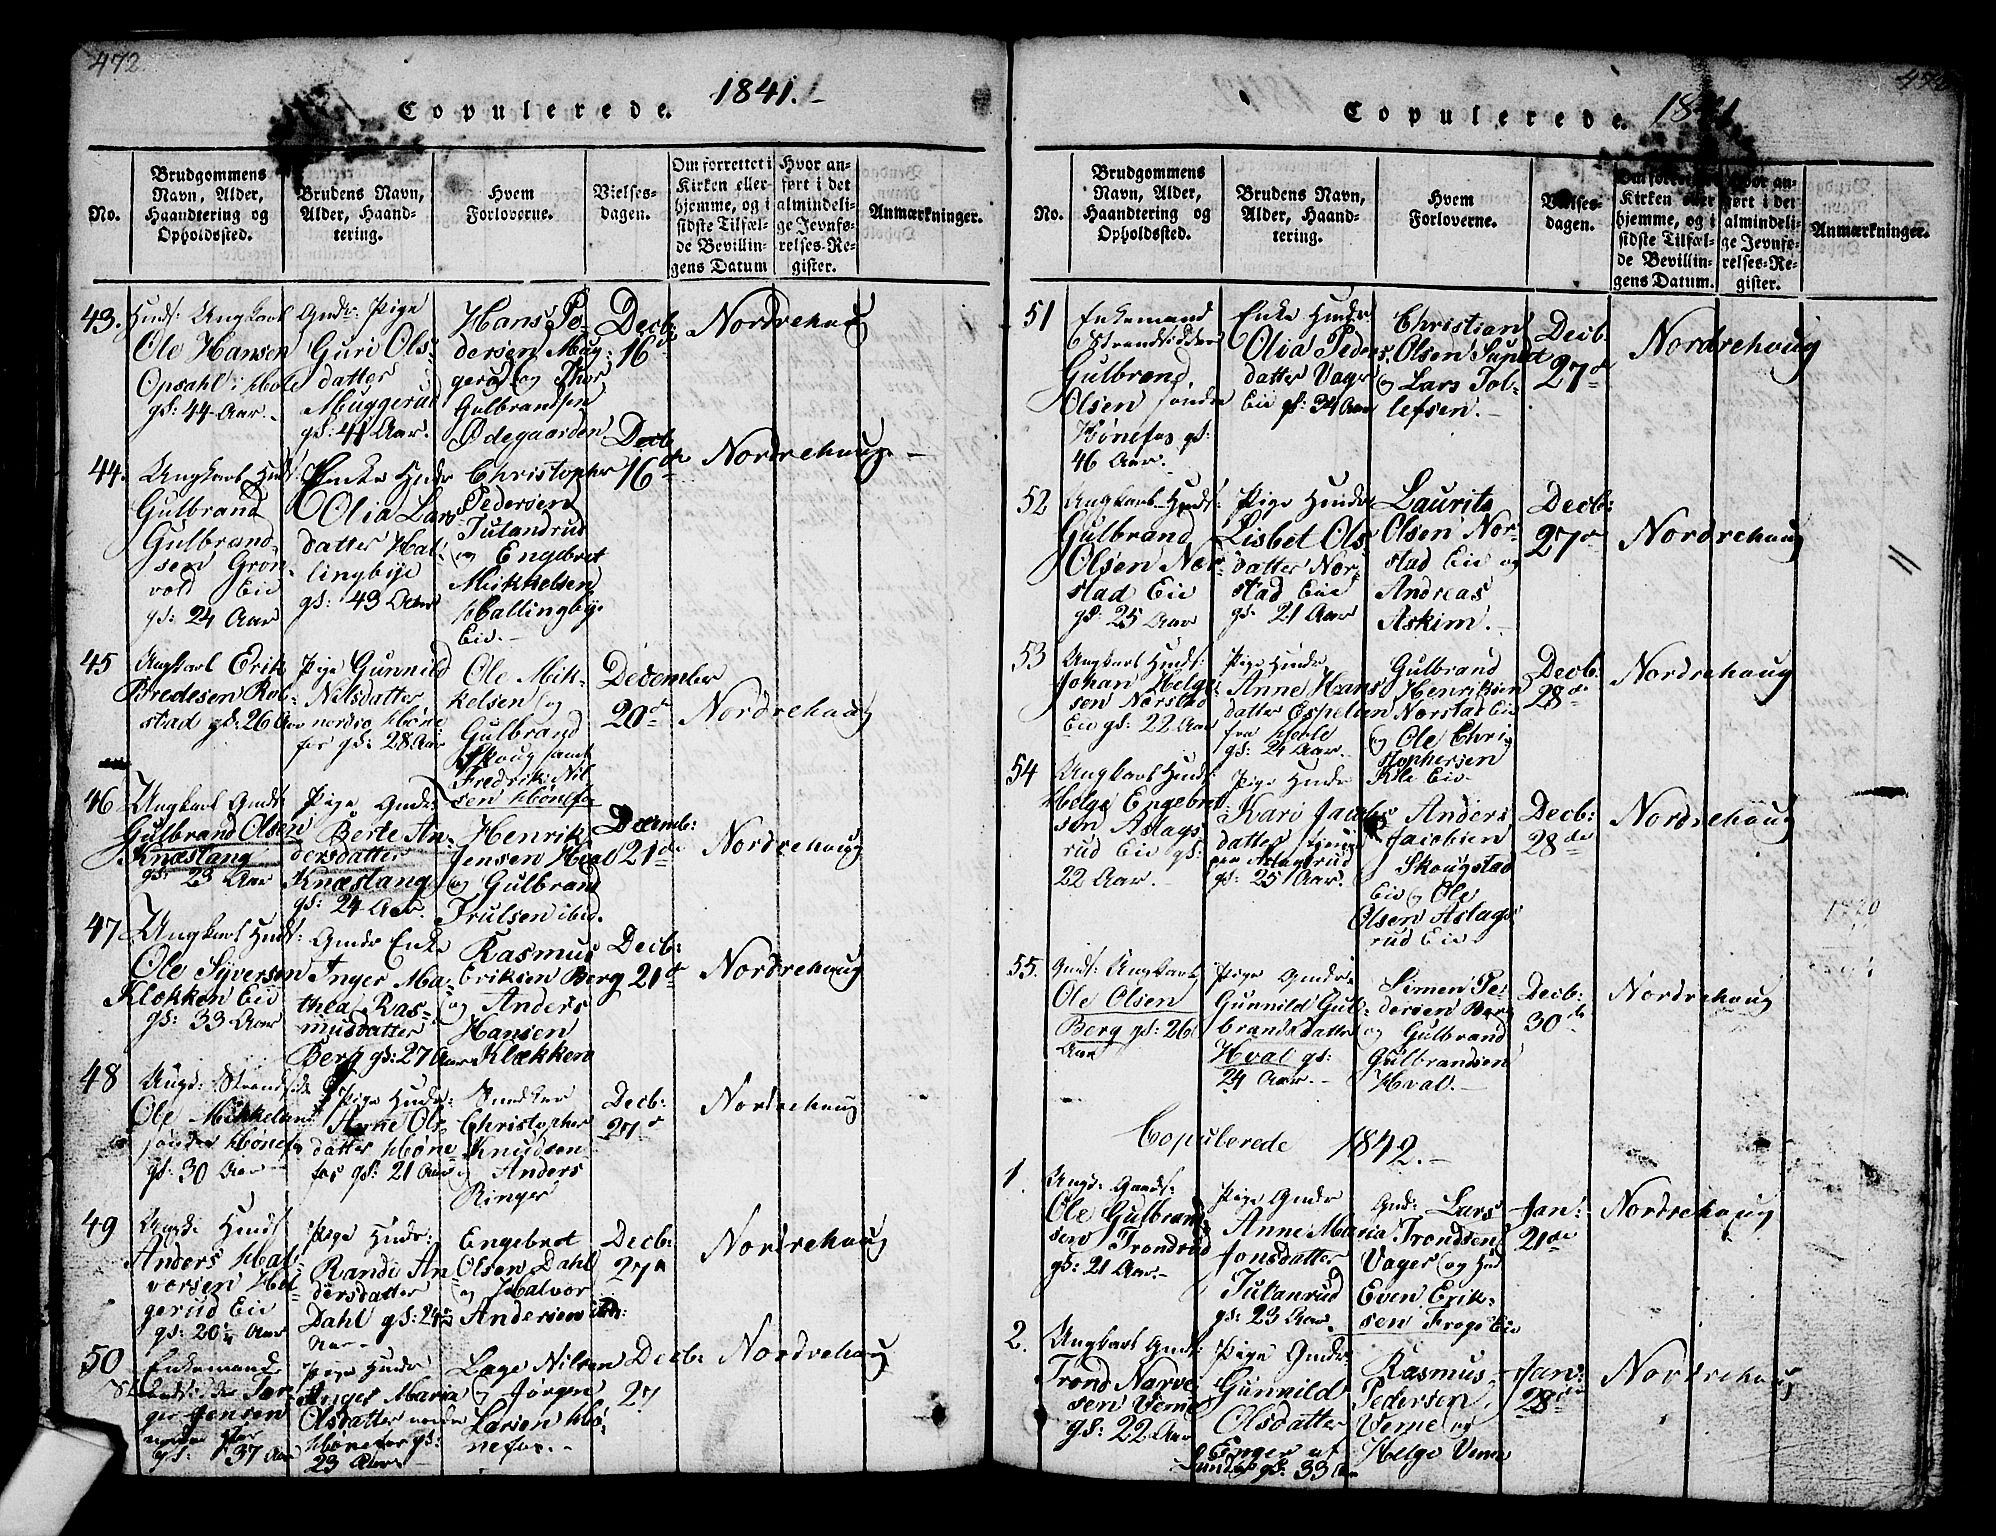 472.
Copulerede. 1841.
No.
Brudgommens Navn, Alder, Haandtering og Opholdssted.
Brudens Navn, Alder, Haandtering.
Hvem Forloverne.
Vielsesdagen.
Om forrettet i Kirken eller hjemme, og i sidste Tilfælde Bevillingens Datum
Hvor anført i det almindelige Jevnførelses-Register.
Anmærkninger.
43. Ungkarl
Ole Hansen
Opsahl i Hole
gl: 44 Aar.
Gmds: Pige
Guri Olsdatter
Muggerud
gl: 44 Aar.
Hans Pedersen Muggerud og Thor
Gulbrandsen
Ødegaarden
Decb: 16de
Nordrehoug
44. Ungkarl
Gulbrand
Gulbrandsen Grønvold Eie
gl: 24 Aar
Enke
Olia Larsdatter Hallingbye
gl: 43 Aar
Christopher
Pedersen
Julandrud
og Engebret
Mikkelsen
Hallingbye
Eie.
Decb: 16de
Nordrehoug
45 Ungkarl Erik
Bredesen Rolstad gl: 26 Aar
Pige Gunnild
Nilsdatter
nordre Hønefos gl: 28 Aar
Ole Mikkelsen og
Gulbrand
Skoug samt
Fredrik Nilsen Hønefos
December
20de
Nordrehoug
46 Ungkarl
Gulbrand Olsen
Knæstang
gl: 23 Aar
Pige
Berte Andersdatter
Knæstang
gl: 24 Aar.
Henrik
Jensen Hval
og Gulbrand
Trulsen ibid.
Decemb:
21de
Nordrehoug
47 Ungkarl
Ole Syversen
Klækken Eie
gl: 33 Aar
Enke
Inger Mathea Rasmusdatter
Berg gl: 27 Aar
Rasmus
Eriksen Berg
og Anders
Hansen
Klækken
Decb: 21de
Nordrehoug
48
Ole Mikkelsen
søndre Hønefos
gl: 30 Aar
Pige
Anne Olsdatter Hønefos gl: 21 Aar
Snedker
Christopher
Knudsen
og Anders
Ringer
Decb:
27de
Nordrehoug
49
Anders Halvorsen Helgerud Eie
gl: 20½ Aar
Pige
Randi Andersdatter
Dahl
Engebret
Olsen Dahl
og Halvor
Andersen
Decb:
27de
Nordrehoug
50 Enkemand
gl: 37 Aar
Pige
Inger Maria
Olsdatter nordre
Hønefos gl:
23 Aar
Lage Nilsen
og Jørgen
Larsen Hønefos.
Decb:
27
Nordrehoug
Copulerede. 1841
No.
Brudgommens Navn, Alder, Haandtering og Opholdssted.
Brudens Navn, Alder, Haandtering.
Hvem Forloverne.
Vielsesdagen.
Om forrettet i Kirken eller hjemme, og i sidste Tilfælde Bevillingens Datum.
Hvor anført i det almindelige Jevnførelses-Register.
Anmærkninger.
51 Enkemand
Strandsidder
Gulbrand
Olsen søndre
Hønefos gl:
46 Aar.
Enke
Olia Pedersdatter Vager
Eie gl: 34 Aar
Christian
Olsen Sund
og Lars Tollefsen.
Decb
27de
Nordrehoug
52 Ungkarl
Gulbrand
Olsen Norstad Eie
gl: 25 Aar
Pige
Lisbet Olsdatter Norstad Eie
gl: 21 Aar
Laurits
Olsen Norstad Eie og
Andreas
Askim.
Decb:
27de
Nordrehoug
53 Ungkarl
Johan Helgesen Norstad
Eie gl: 22 Aar
Pige
Anne Hansdatter Espelien
fra Hole
gl: 24 Aar.
Gulbrand
Henriksen
Norstad Eie
og Ole Christophersen
Decb:
28de
Nordrehoug
54 Ungkarl
Helge Engebretsen Aslagsrud Eie gl:
22 Aar.
Pige
Kari Jacobsdatter
Aslagsrud
gl: 25 Aar.
Anders
Jacobsen
Skougstad
Eie og Ole
Olsen Aslagsrud Eie
Decb:
28de
Nordrehoug
55. Ungkarl
Ole Olsen
Berg gl: 26
Aar
Pige
Gunnild Gulbrandsdatter
Hval gl:
24 Aar.
Simen Pedersen Berg
og Gulbrand
Gulbrandsen
Hval.
Decb:
30de
Nordrehoug
Copulerede 1842.
1.
Ole Gulbrandsen Trondrud
gl: 21 Aar.
Pige
Anne Maria
Jonsdatter
Julanrud
gl: 23 Aar.
Lars
Trondsen
Vager og
Even Eriksen Frogs Eie
Jan:
21de
Nordrehoug
2. Ungkarl
Trond Narvesen Veme
gl: 22 Aar
Pige
Gunnild
Olsdatter
Enger af
gl: 33 Aar
Rasmus
Pedersen
Veme og
Helge Veme
Jan:
28de
Nordrehoug